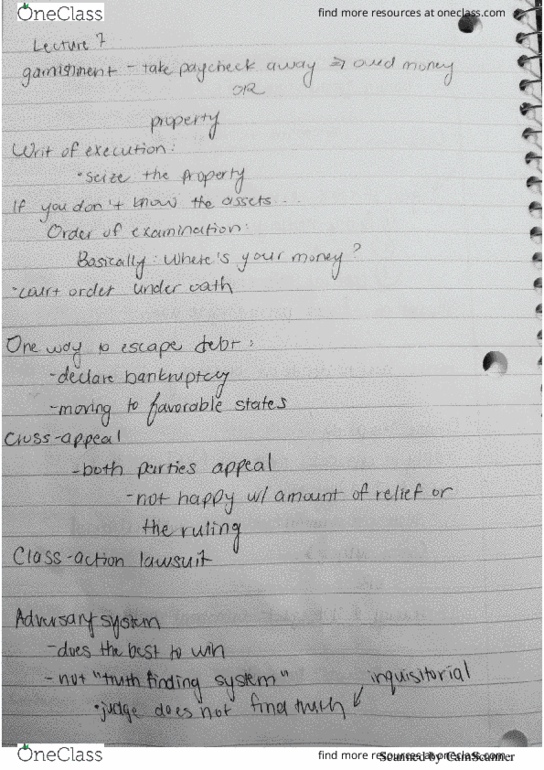 OneClass
find more resources at oneclass.com
Lecture 7
garnishment - take paycheck away ⇒ owed money
OR
property
Writ of execution:
• seize the property
If you don't know the assets...
Order of examination:
Basically: Where's your money?
• court order under oath
One way to escape debt:
- declare bankruptcy
- moving to favorable states
Cross-appeal
- both parties appeal
- not happy w/ amount of relief or
the ruling
Class-action lawsuit
Adversary system
- does the best to win
- not "truth finding system"
inquisitorial
• judge does not find truth ↙
OneClass
find more resources at oneclass.com
Scanned by CamScanner